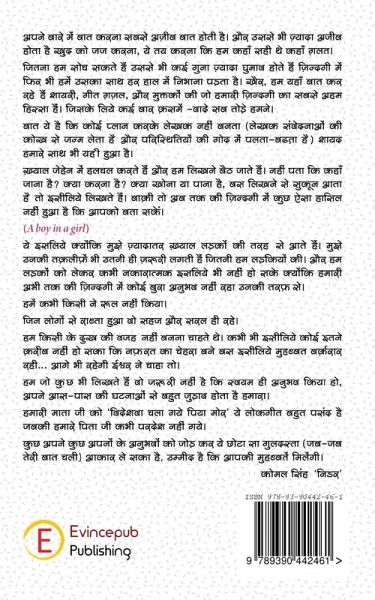 अपने बारे में बात करना सबसे अजीब बात होती है। और उससे भी ज़्यादा अजीब
होता है खुद को जज करना, ये तय करना कि हम कहाँ सही थे कहाँ ग़लत।
जितना हम सोच सकते हैं उससे भी कई गुना ज़्यादा घुमाव होते हैं ज़िन्दगी में
फिर भी हमें उसका साथ हर हाल में निभाना पड़ता है। खैर, हम यहाँ बात कर
रहे हैं शायरी, गीत ग़ज़ल, और मुक्तकों की जो हमारी ज़िन्दगी का सबसे अहम
हिस्सा हैं। जिसके लिये कई बार क़समें -वादे सब तोड़े हमने।
बात ये है कि कोई प्लान करके लेखक नहीं बनता (लेखक संवेदनाओं की
कोख से जन्म लेता हैं और परिस्थितियों की गोद में पलता-बढ़ता है) शायद
हमारे साथ भी यही हुआ है।
ख़्याल जेहेन में हलचल करते हैं और हम लिखने बैठ जाते हैं। नहीं पता कि कहाँ
जाना है? क्या करना है? क्या खोना या पाना है, बस लिखने से सुकून आता
है तो इसीलिये लिखते हैं। बाक़ी तो अब तक की ज़िन्दगी में कुछ ऐसा हासिल
नहीं हुआ है कि आपको बता सकें।
(A boy in a girl)
ये इसलिये क्योंकि मुझे ज़्यादातर ख़्याल लड़कों की तरह से आते हैं। मुझे
उनकी तक़लीफ़ें भी उतनी ही ज़रूरी लगती हैं जितनी हम लड़कियों की। और हम
लड़कों को लेकर कभी नकारात्मक इसलिये भी नहीं हो सके क्योंकि हमारी
अभी तक की ज़िन्दगी में कोई बुरा अनुभव नहीं रहा उनकी तरफ़ से।
हमें कभी किसी ने रूल नहीं किया।
जिन लोगों से राब्ता हुआ वो सहज और सरल ही रहे।
हम किसी के दुख की वजह नहीं बनना चाहते थे। कभी भी इसीलिये कोई इतने
क़रीब नहीं हो सका कि नफ़रत का चेहरा बने बस इसीलिये मुहब्बत बर्क़रार
रही... आगे भी रहेगी ईश्वर ने चाहा तो।
हम जो कुछ भी लिखते हैं वो जरूरी नहीं है कि स्वयम ही अनुभव किया हो,
अपने आस-पास की घटनाओं से बहुत जुड़ाव होता है हमारा।
हमारी माता जी को 'बिदेशवा चला गये पिया मोर' ये लोकगीत बहुत पसंद है
जबकी हमारे पिता जी कभी परदेश नहीं गये।
कुछ अपने कुछ अपनों के अनुभवों को जोड़ कर ये छोटा सा गुलदस्ता (जब-जब
तेरी बात चली) आकार ले सका है, उम्मीद है कि आपकी मुहब्बतें मिलेंगी।
कोमल सिंह 'निडर'
ISBN 978-93-90442-46-1
E Evincepub
Publishing
9 789390 442461 >